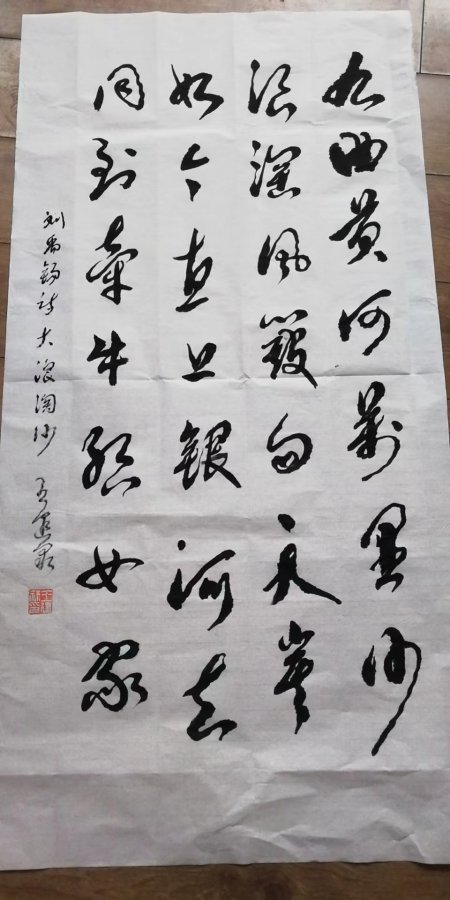 九曲黄河萬里沙
浪淘風簸自天崖
如今直上銀河去
同到牽牛织女家
刘禹锡诗大浪淘沙 王建